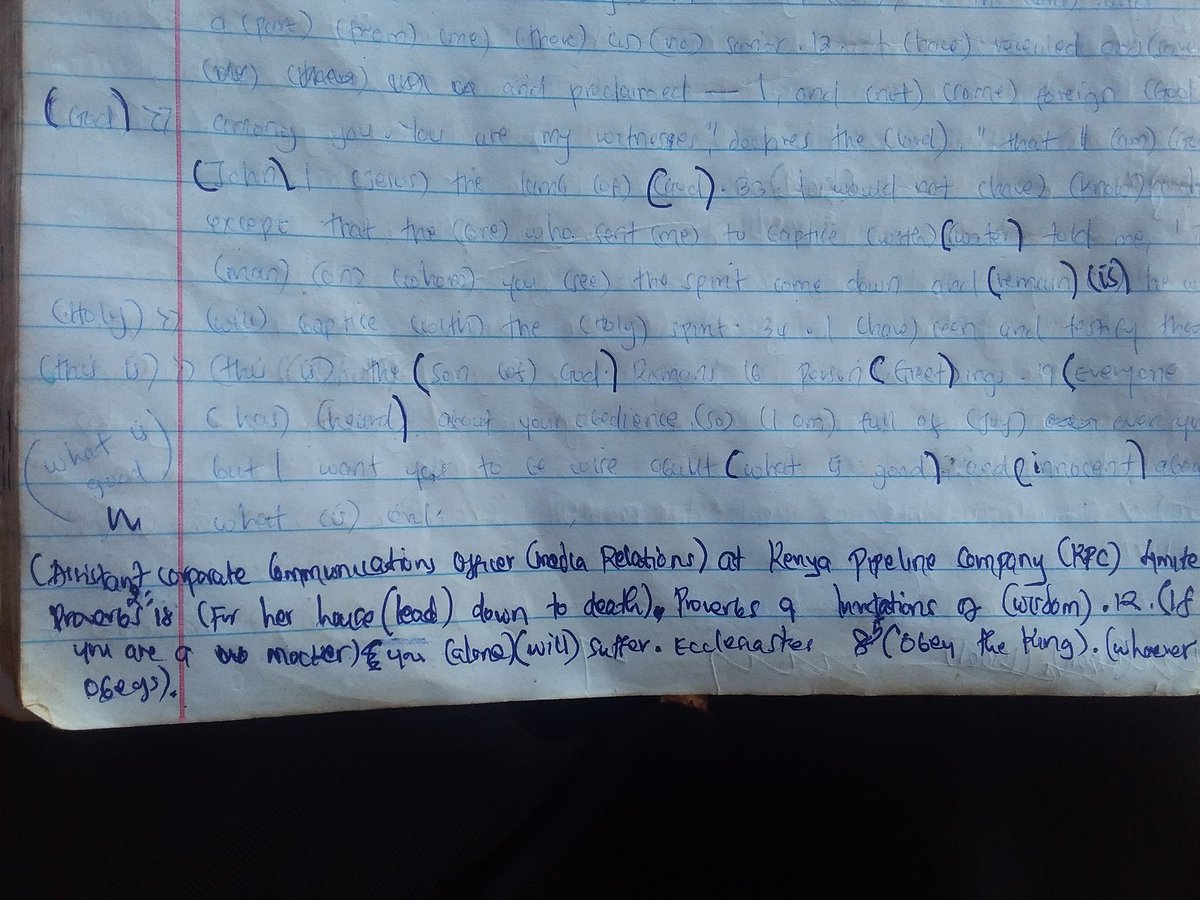 a (part) (from) (me) (there) is (no) savior. 12. I (have) revealed and
and proclaimed — I, and (not) (some) foreign (God
(God) >> among you. "You are my witnesses", declares the (Lord), "that I (am)
(John) 1 (Jesus) the lamb (of) (God). 33 I would not (have) (know)n
except that the (one) who sent (me) to baptice (with) (water) told me,
(man) (on) (whom) you (see) the spirit come down and (remain) (is) he
(Holy) >> (will) baptice (with) the (Holy) spirit. 34. I (have) seen and testify
(this is) >> (this (is) the (Son (of) God.) Romans 16 person (Greet)ings. 19 (Everyone
(has) (heard) about your obedience, (so) (I am) full of (joy) over
(what is good) but I want you to be wise about (what is good), and (innocent)
what (is)
(Assistant corporate Communications Officer (media Relations) at Kenya Pipeline Company (KPC)
Proverbs 2: 18 (For her house (lead) down to death), Proverbs 9 of (wisdom). 12. (If
you are a mocker) you (alone) (will) suffer. Ecclenastes 8 (Obey the king). (whoever
obeys).